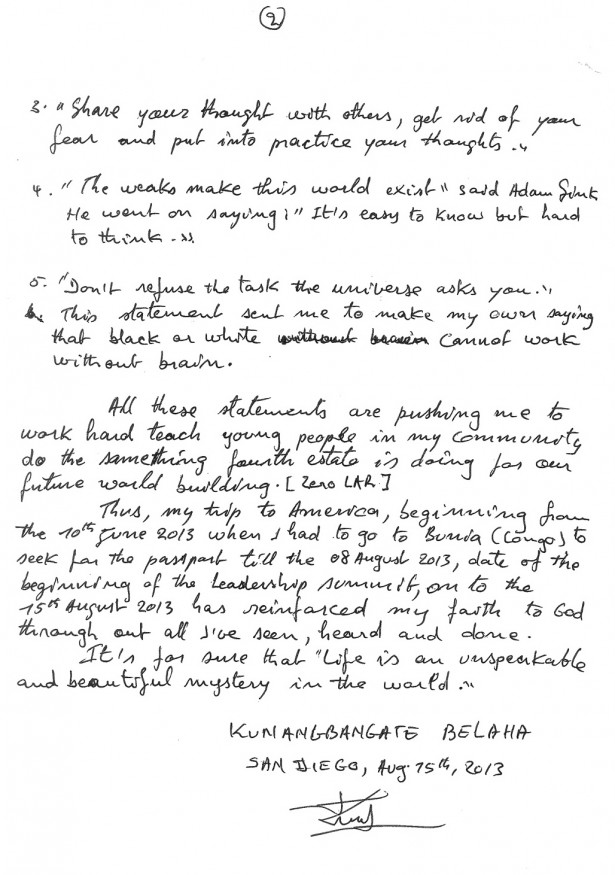 2
3. "Share your thought with others, get rid of your
fear and put into practice your thoughts."
4. "The weaks make this world exist" said Adam
He went on saying: "It's easy to know but hard
to think."
5. "Don't refuse the task the universe asks you."
This statement sent me to make my own saying
that black or white without brain cannot work
without brain.
All these statements are pushing me to
work hard teach young people in my community
do the samething fourth estate is doing for our
future world building. [Zero LAR.]
Thus, my trip to America, beginning from
the 10th June 2013 when I had to go to Bunia (Congo) to
seek for the passport till the 08 August 2013, date of the
beginning of the leadership summit, on to the
15th August 2013 has reinforced my faith to God
through out all I've seen, heard and done.
It's for sure that "Life is an unspeakable
and beautiful mystery in the world."
KUMANGBANGATE BELAHA
SAN DIEGO, Aug. 15th, 2013